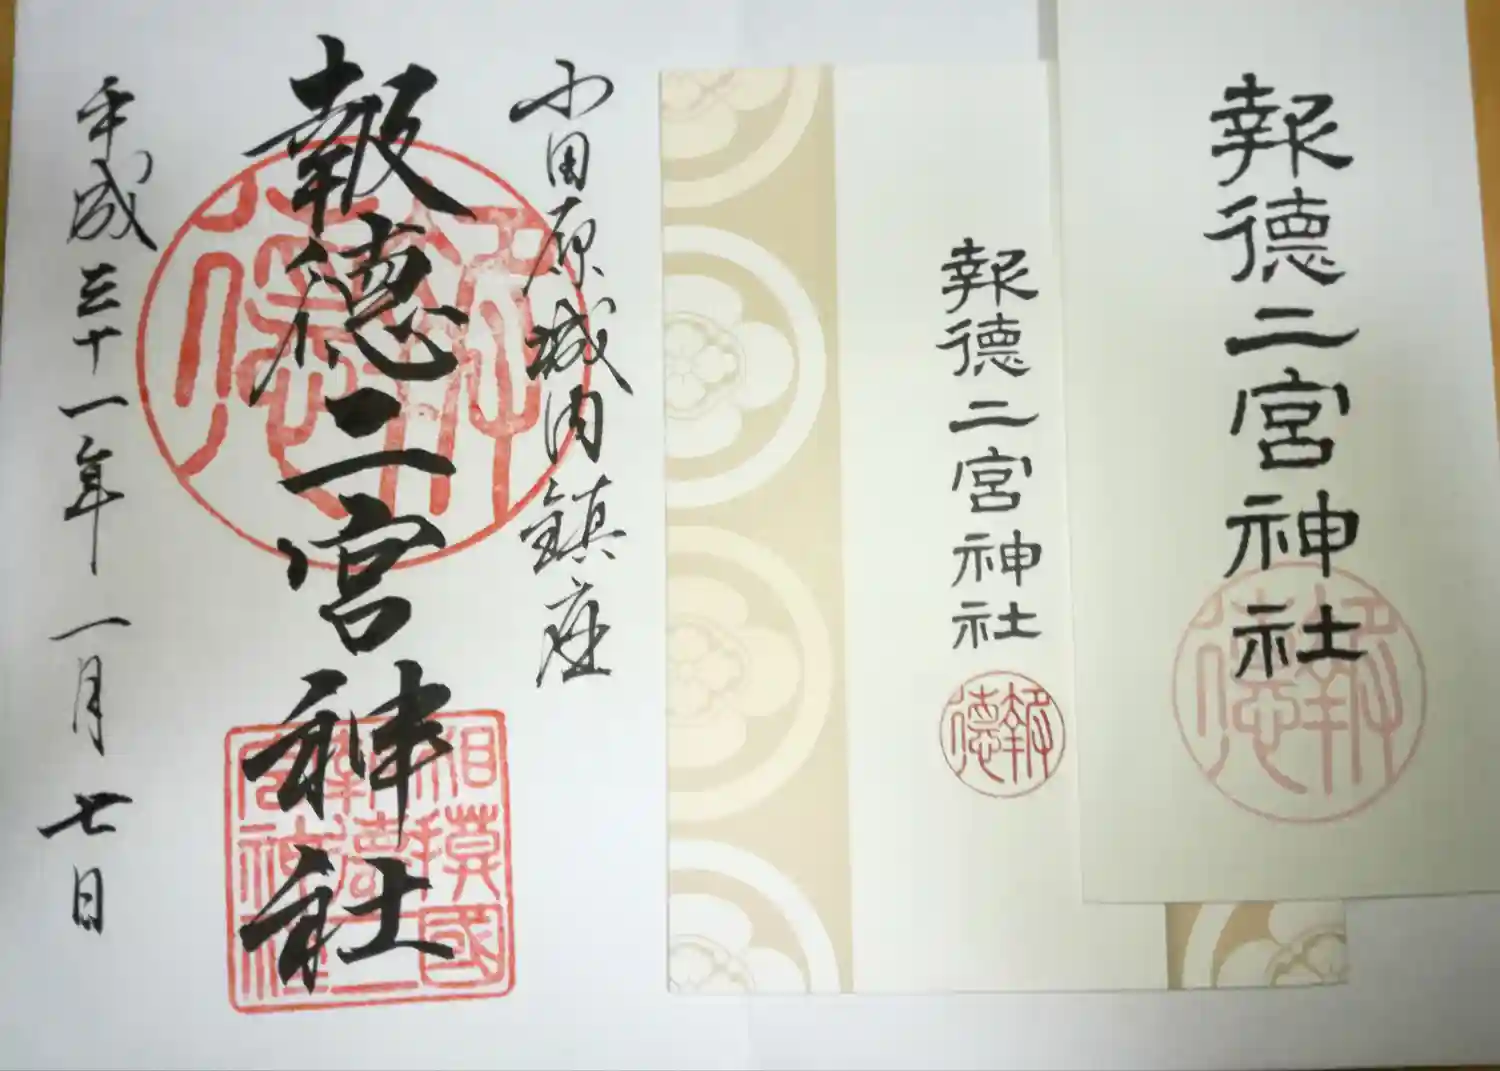 小田原城内鎮座
報徳二宮神社
平成三十一年一月七日
報徳
相模國
報徳二宮神社
報徳
報徳二宮神社
報徳